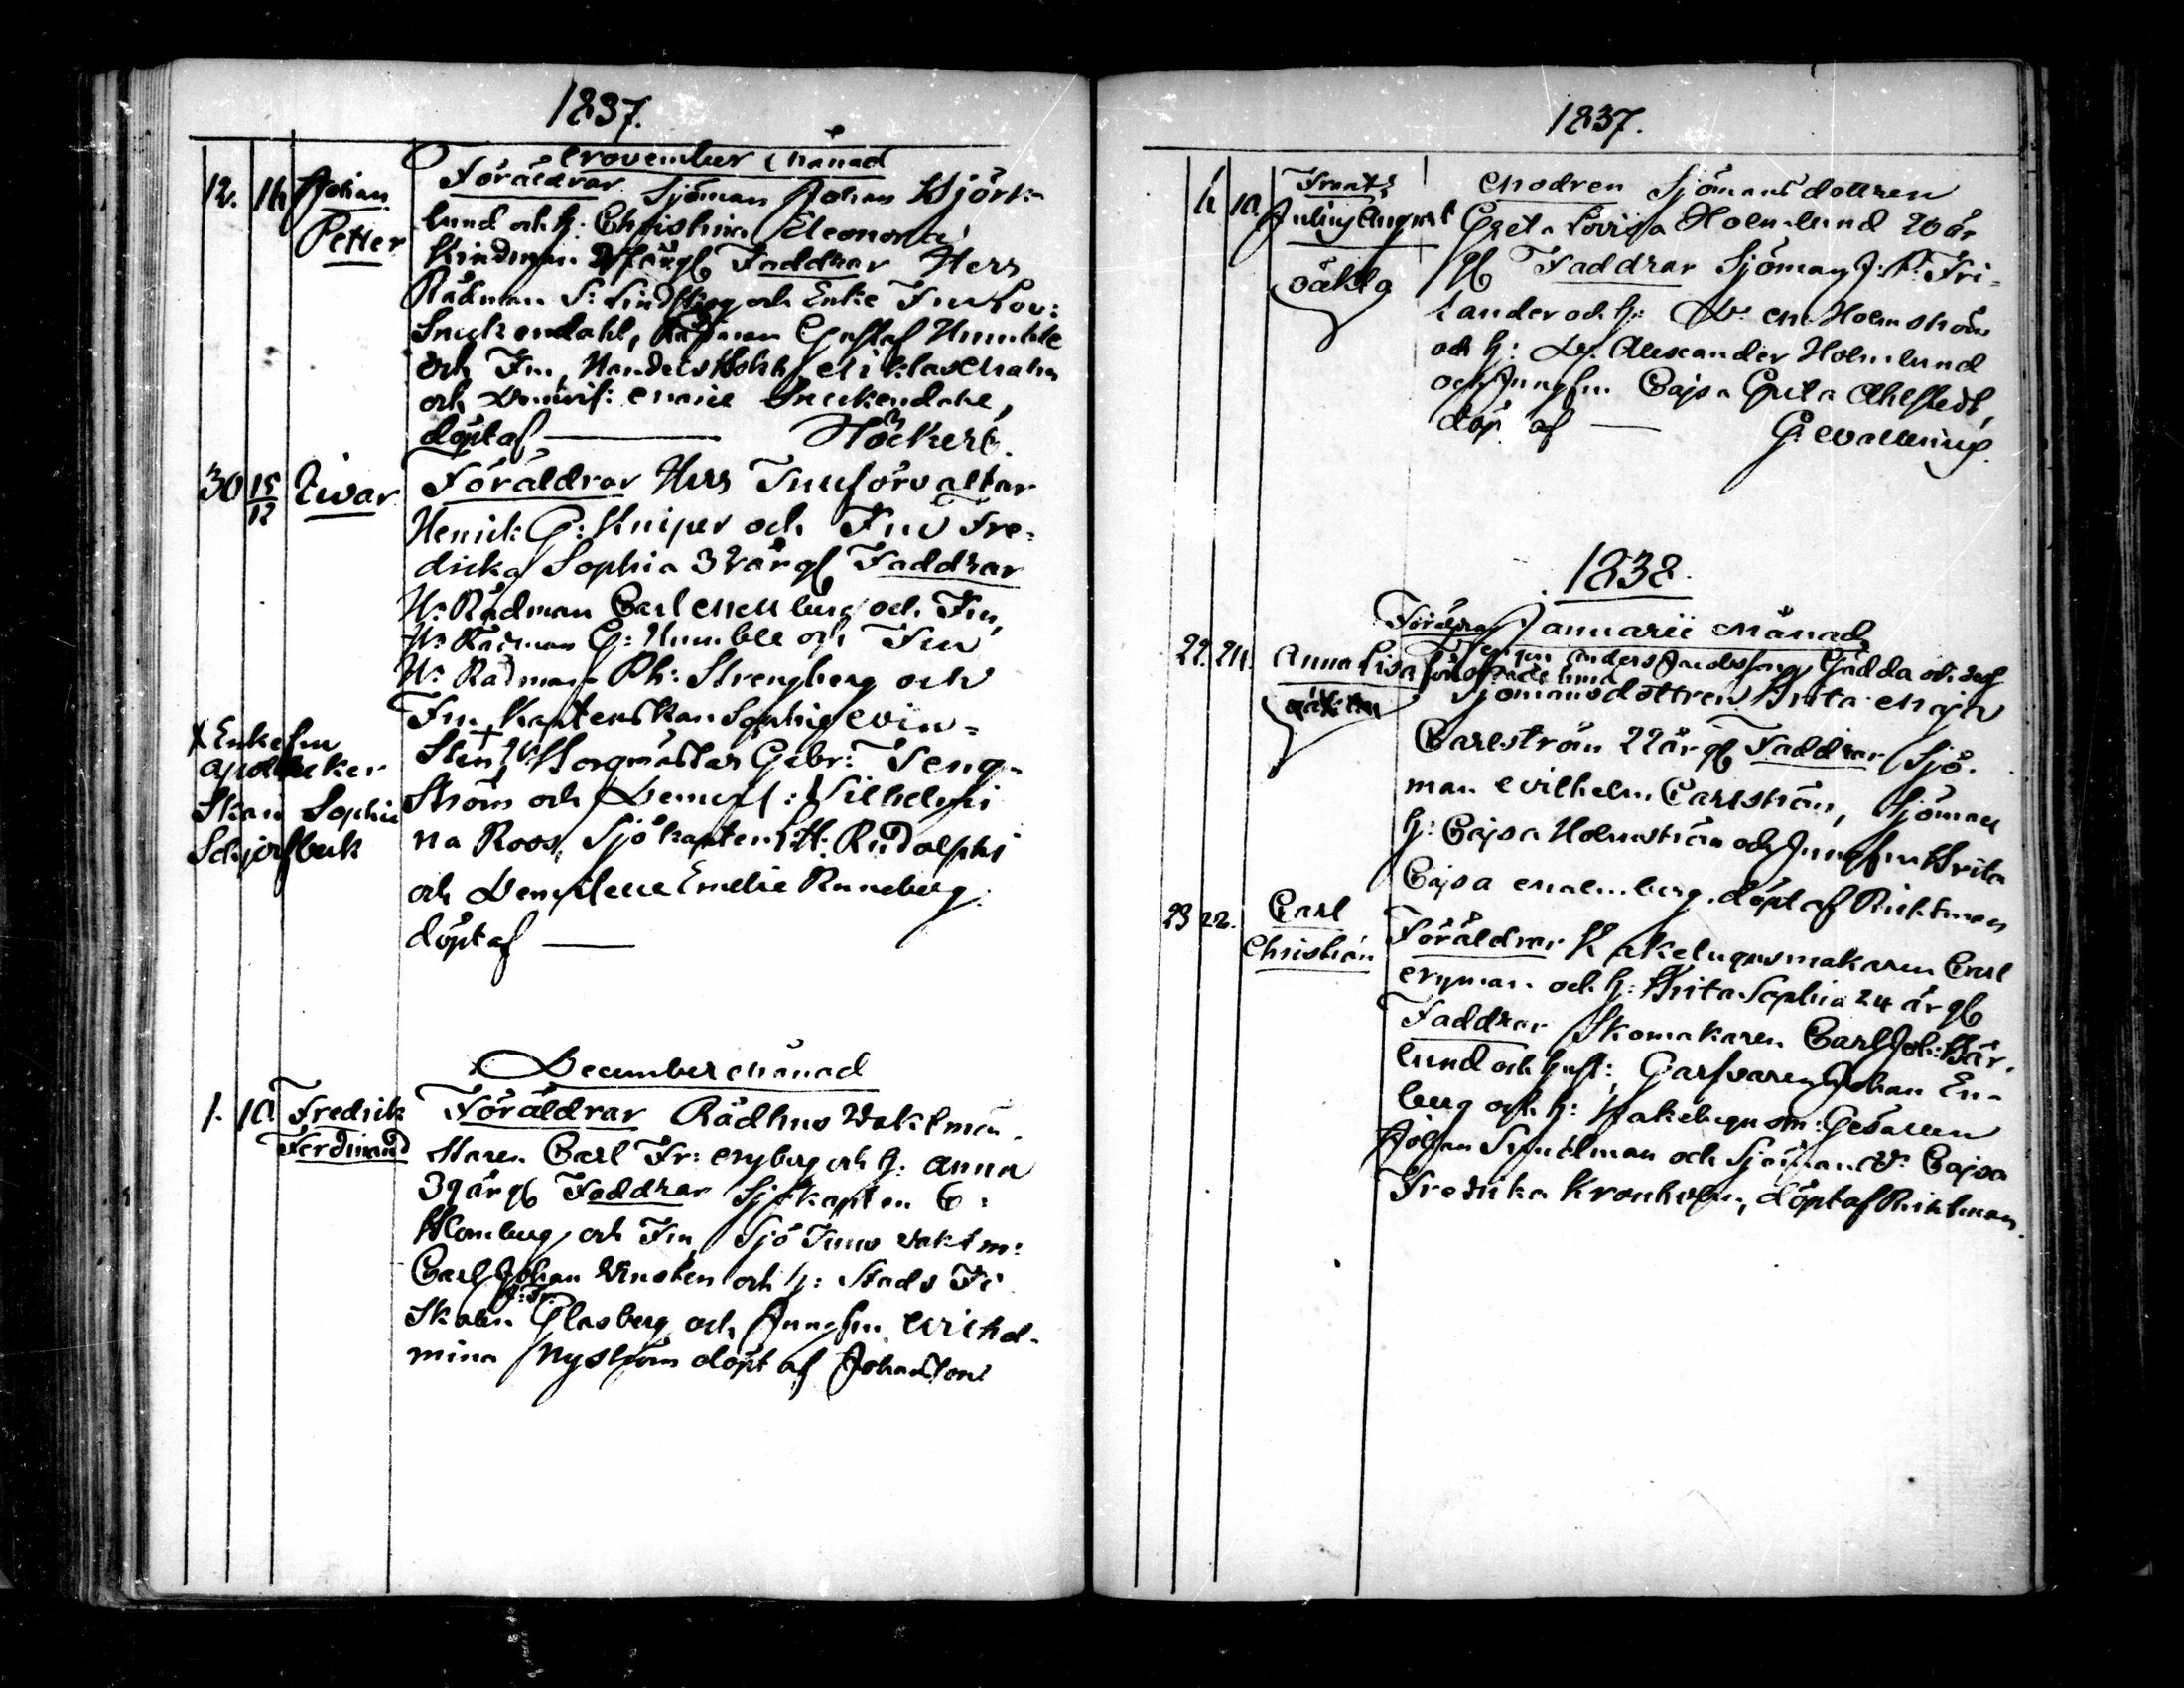 1837.
November Månad
12. 14 Johan Petter
Föräldrar Sjöman Johan Björk-
lund och h: Christina Eleonora
Lindman årgl Faddrar Herr
Rådman S: Lindberg och Enke Fru Lov:
Snickendahl, Rådman Gustaf Humble
och Fru, Handelsbokh Niklas Malm
och Demois: Marie Snickendahl,
döpt af — Höckert.
30 15/12 Ivar
Föräldrar Herr Tullförvaltar
Henrik G: Kniper och Fru Fre-
dricka Sophia 32 årgl Faddrar
Hr Rådman Carl Mellberg och Fru,
Hr Rådman G: Humble och Fru
Hr Rådman Ph: Strengberg och
Fru Kaptenskan Sophie Win-
sten, + Borgmästar Gabr: Teng-
ström och Demois: Vilhelmi
na Roos, Sjökapten H: Rudolphi
och Demoiselle Emelie Runeberg.
döpt af —
x Enkefru
apothekar
Skan Sophie
Schjerfbeck
December Månad
1. 10. Fredrik Ferdinand
Föräldrar Rådhus Waktmä-
staren Carl Fr: Nyberg och h: Anna
39 årgl Faddrar Sjökapten C:
Blomberg och Fru, Sjö Tulls Vaktm:
Carl Johan Winsten och h: Stads Fi
skalen Glasberg och Jungfru Wilhel-
mina Nyström döpt af Johansson
1837.
6 10. Frants Julius August oäkta
Modren Sjömansdottren
Greta Lovisa Holmlund 26 år
gl Faddrar Sjöman J: P: Fri-
lander och h: Dr. M Holmström
och h: Dr. Alexander Holmlund
och Jungfru Cajsa Greta Ahlstedt,
döp af — G: Walling.
1838.
Januarii Månad
22. 24. Anna Lisa
Föräldrar Anders Gädda och
Sjömansdottren Brita Maja
Carlström 22 årgl Faddrar Sjö-
man Wilhelm Carlström, Sjöman
h: Cajsa Holmström och Jungfru Brita
Cajsa Malmberg. döpt af Ricktman
23 22. Carl Christian
Föräldrar Kakelugnsmakaren Carl
Nyman och h: Brita Sophia 24 år gl
Faddrar Skomakaren Carl Joh: Bär-
lund och hust:, Garfvaren Johan En-
berg och h: Kakelugnsm: Gesällen
Johan Sundman och Sjöman D: Cajsa
Fredrika Kronholm, döpt af Ricktman.